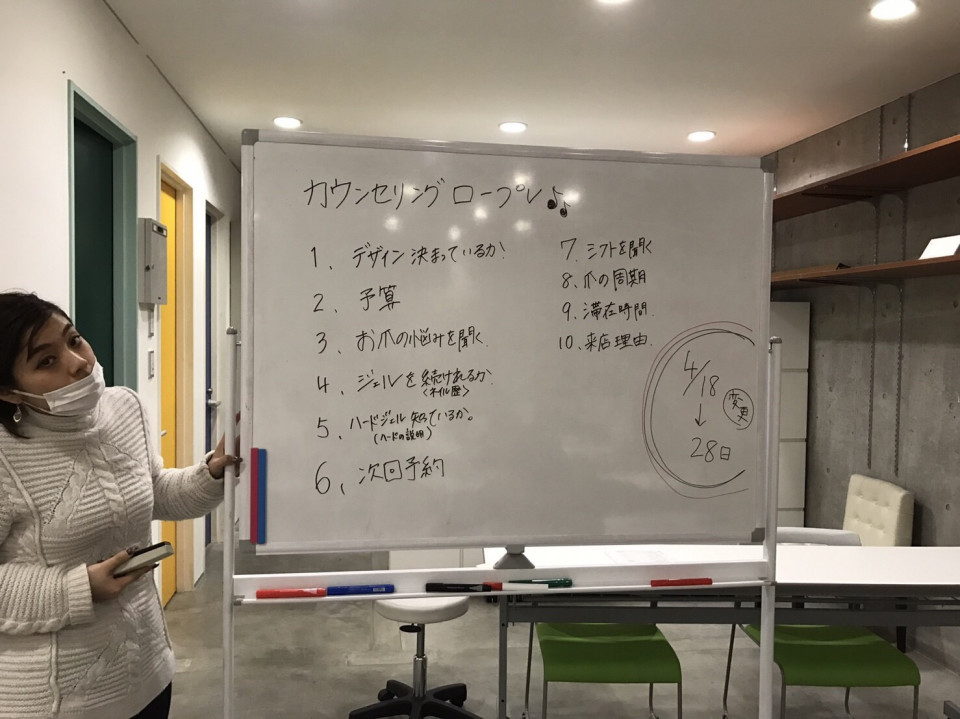 カウンセリング ロープレ♪♪
1、デザイン決まっているか、
2、予算
3、お爪の悩みを聞く.
4、ジェルを続けれるか.
〈ネイル歴〉
5、ハードジェル知っているか。
(ハードの説明)
6、次回予約
7、シフトを聞く
8、爪の周期
9、滞在時間.
10、来店理由.
4/18
↓
28日
変更